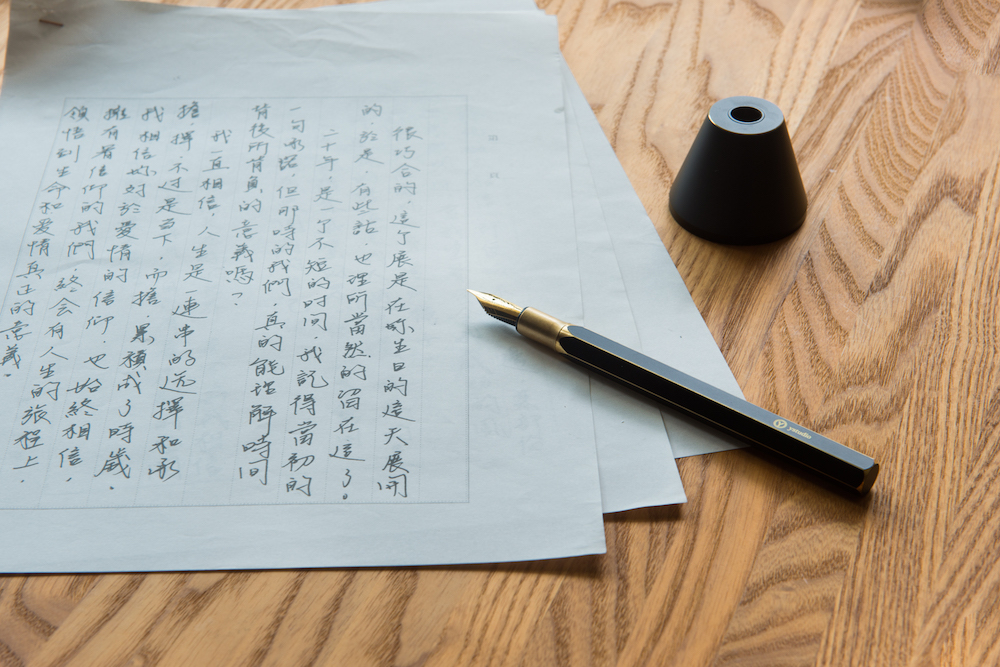 很巧合的，這个展是在妳生日的這天展開
的，於是，有些話，也理所當然的留在這了。
二十年，是一个不短的时间，我記得當初的
一句承諾，但那時的我們，真的能理解時間
背後所肩負的意義嗎？
我一直相信，人生是一連串的选擇和承
擔，擇，不过是当下，而擔，累積成了時歲。
我相信妳對於愛情的信仰，也始終相信，
擁有著信仰的我們，終会有人生的旅程上，
領悟到生命和愛情真正的意義。
ystudio